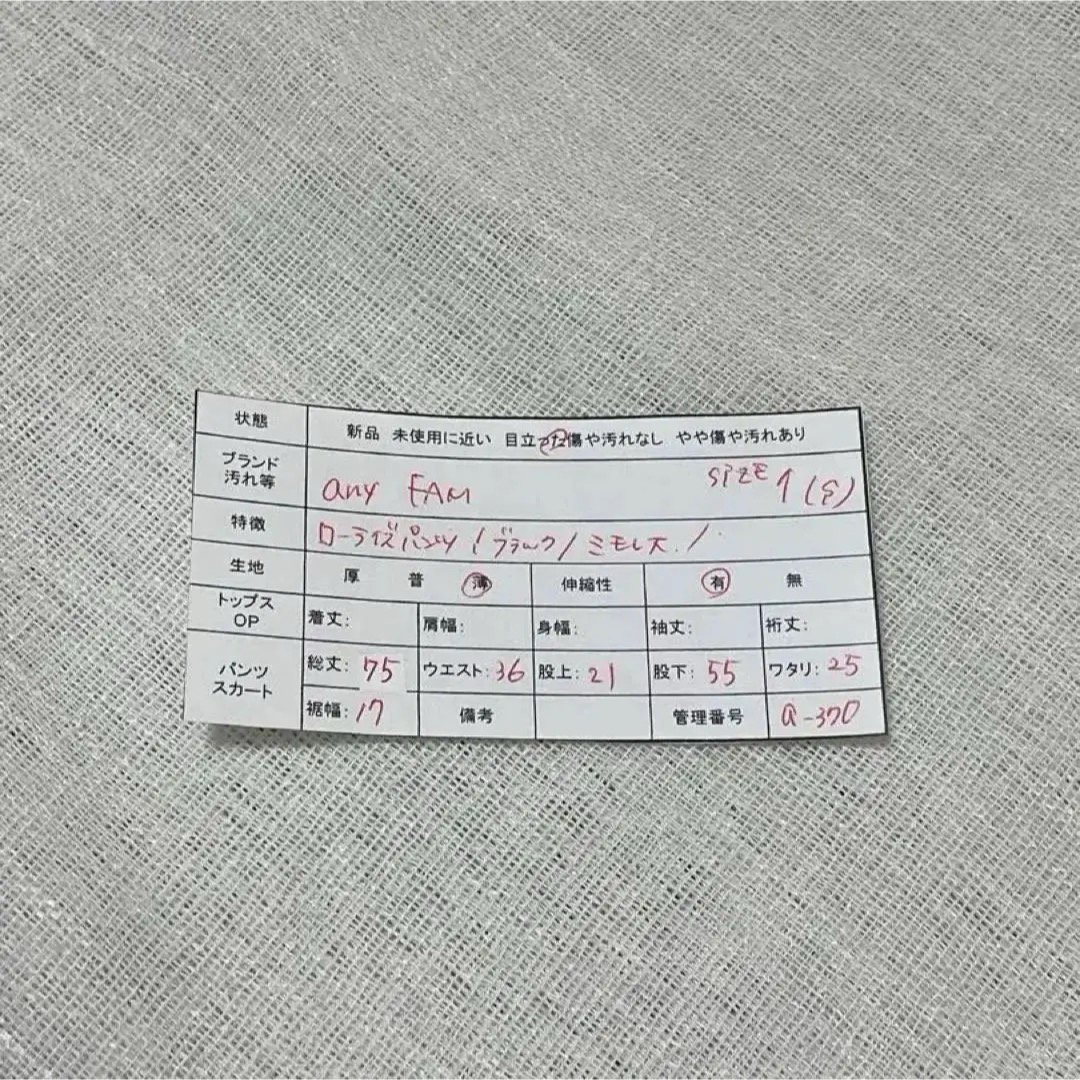 状態 新品 未使用に近い 目立った傷や汚れなし やや傷や汚れあり
ブランド
汚れ等
any FAM SIZE 1 (S)
特徴 ローライズパンツ / ブラック / ミモレ丈. /
生地 厚 普 薄 伸縮性 有 無
トップス
OP
着丈: 肩幅: 身幅: 袖丈: 裄丈:
パンツ
スカート
総丈: 75 ウエスト: 36 股上: 21 股下: 55 ワタリ: 25
裾幅: 17 備考 管理番号 a-370